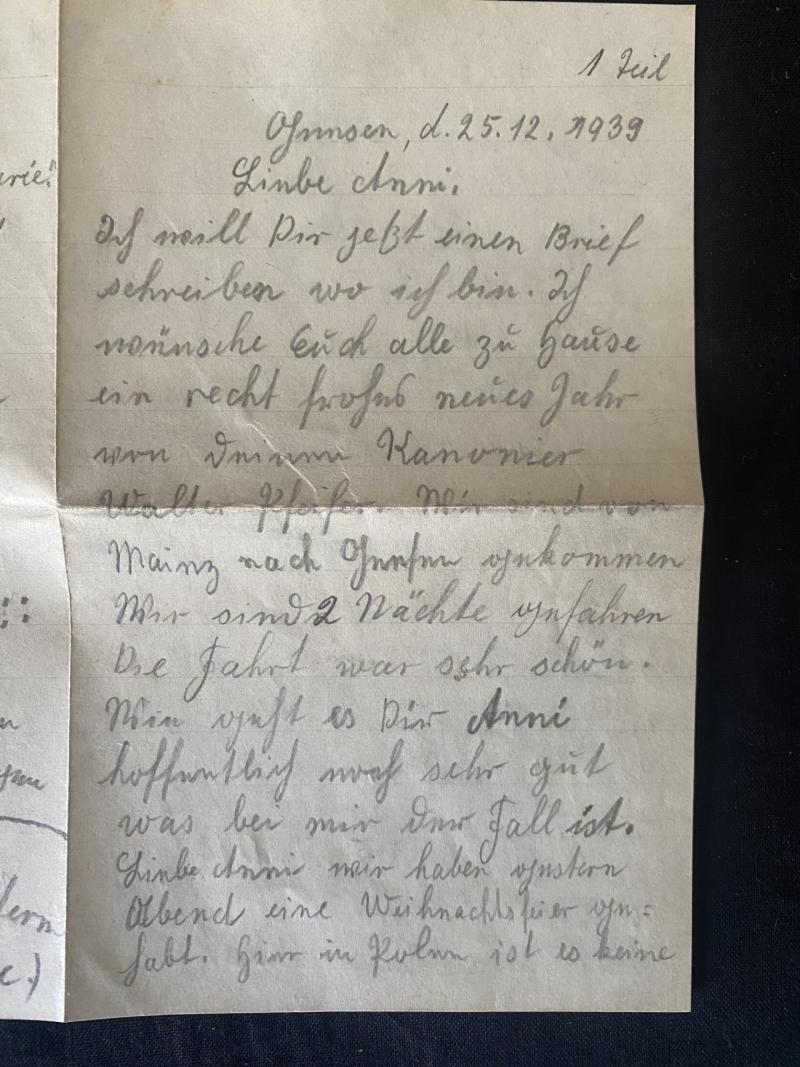 1 Teil
Gnesen, d. 25.12.1939
Liebe Anni.
Ich will Dir jetzt einen Brief
schreiben wo ich bin. Ich
wünsche Euch alle zu Hause
ein recht frohes neues Jahr
von deinen Kanonier
Walter Pfeifer. Wir sind von
Mainz nach Gnesen gekommen
Wir sind 2 Nächte gefahren
Die Fahrt war sehr schön.
Wie geht es Dir Anni
hoffentlich noch sehr gut
was bei mir der Fall ist.
Liebe Anni wir haben gestern
Abend eine Weihnachtsfeier ge=
habt. Hier in Polen ist es keine